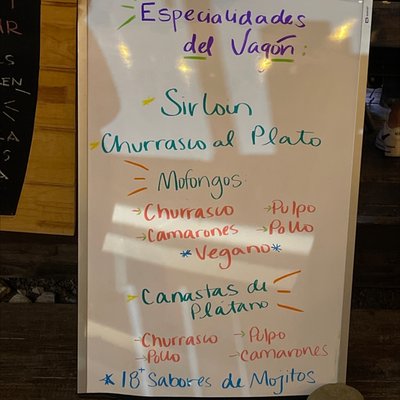 Especialidades
del Vagón:
Sirloin
Churrasco al Plato
Mofongos:
→ Churrasco → Pulpo
→ Camarones → Pollo
*Vegano*
Canastas de
Plátano
→ Churrasco → Pulpo
→ Pollo → Camarones
* 18+ Sabores de Mojitos